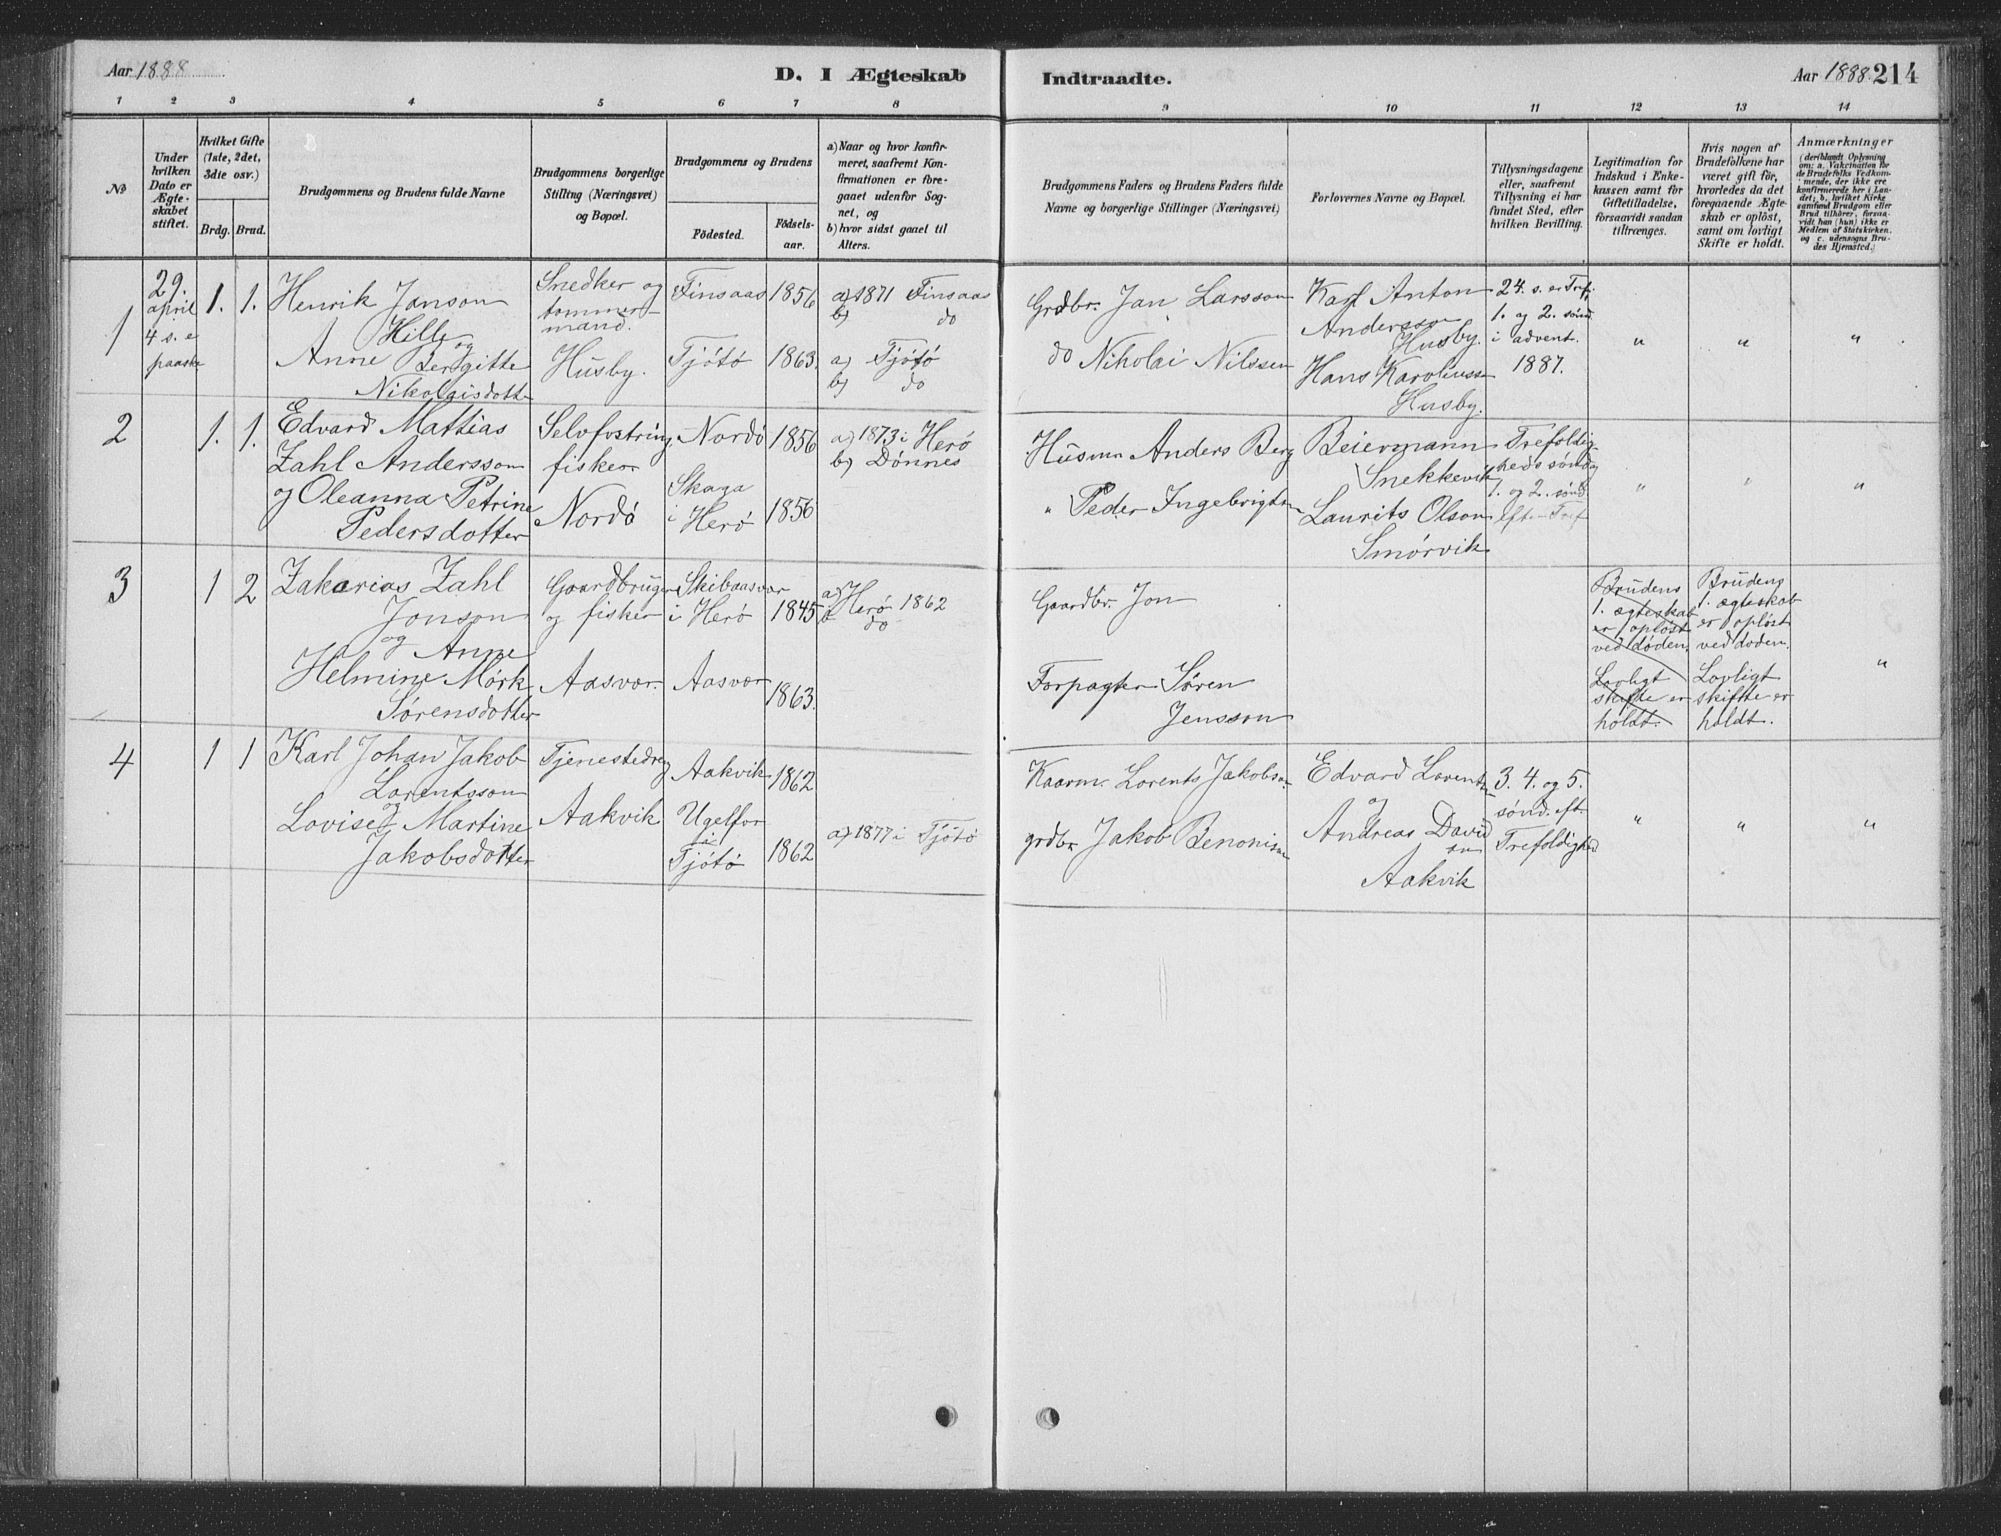 Aar 1888
D. I Ægteskab
Indtraadte.
Aar 1888. 214
1 2 3 4 5 6 7 8
9 10 11 12 13 14
No
Under hvilken Dato er Ægteskabet stiftet.
Hvilket Gifte (1ste, 2det, 3die osv.)
Brdg. Brud.
Brudgommens og Brudens fulde Navne
Brudgommens borgerlige Stilling (Næringsvei) og Bopæl.
Brudgommens og Brudens
Födested.
Födselsaar.
a) Naar og hvor konfirmeret, saafremt Konfirmationen er foregaaet udenfor Sognet, og
b) hvor sidst gaaet til Alters.
Brudgommens Faders og Brudens Faders fulde Navne og borgerlige Stillinger (Næringsvei)
Forlovernes Navne og Bopæl.
Tillysningsdagene eller, saafremt Tillysning ei har fundet Sted, efter hvilken Bevilling.
Legitimation for Indskud i Enkekassen samt for Giftetilladelse, forsaavidt saadan tiltrænges.
Hvis nogen af Brudefolkene har været gift för, hvorledes da det foregaaende Ægteskab er oplöst, samt om lovligt Skifte er holdt.
Anmærkninger
(deriblandt Oplysning om: a. Vakcination for de Brudefolks Vedkommende, der ikke ere konfirmerede her i Landet; b. hvilket Kirkesamfund Brudgom eller Brud tilhörer, forsaavidt han (hun) ikke er Medlem af Statskirken, og c. udensogns Brudes Hjemsted.)
1
29. april
4 s. e paaske
1. 1.
Henrik Janson
Hille
og
Anne Bergitte
Nikolaisdotter
Snedker og
tommermand.
Husby.
Finsaas 1856
Tjötö 1863.
a) 1871 Finsaas
b) do
a) Tjötö
b) do
Grdbr. Jan Larsson
do Nikolai Nilssen
Karl Anton
Andersson
Husby.
Hans Karoliusse
Husby.
24. s. e Tref.
1. og 2. sönd.
i advent.
1887.
" " "
2
1. 1.
Edvard Mattias
Zahl Andersson
og Oleanna Petrine
Pedersdotter
Selvfostring
fisker
Nordö
Nordö 1856
Skaga
i Herö 1856
a) 1873 i Herö
b) Dönnes
Husm Anders Berg
" Peder Ingebrigtsn
Beiermann
Snekkevik
Laurits Olson
Smörvik
Trefoldig
heds sönda
1. og 2. sönd.
efter Tref
" " "
3
1 2
Zakarias Zahl
Jonson
og Anne
Helmine Mörk
Sörensdotter
Gaardbruger
og fisker
Aasvær.
Skibaasvær
i Herö 1845
Aasvær 1863.
a) Herö 1862
b do
Gaardbr. Jon
Forpagter Sören
Jensson
Brudens
1. ægteskab
er oplöst
ved döden.
Lovligt
skifte er
holdt.
Brudens
1. ægteskab
er oplöst
ved doden.
Lovligt
skifte er
holdt.
"
4
1 1
Karl Johan Jakob
Lorentsson
og
Lovise Martine
Jakobsdotter
Tjenestedreg
Aakvik
Aakvik 1862
Ugelfor
i
Tjötö 1862
a) 1877 i Tjötö
Kaarm. Lorents Jakobsn
grdbr Jakob Benonisn
Edvard Lorentsn
og
Andreas David
sn
Aakvik
3. 4. og 5.
sönd. eft.
Trefoldighed
" " "